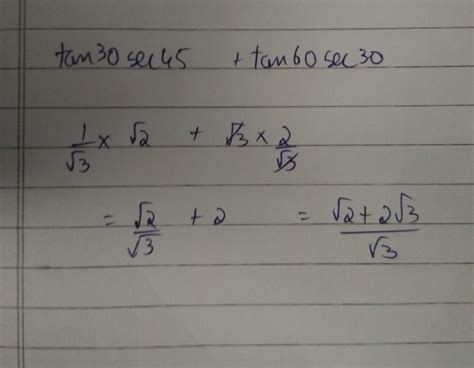 tan30 sec45 + tan60 sec30
1/√3 × √2 + √3 × 2/√3
= √2/√3 + 2 = (√2 + 2√3)/√3